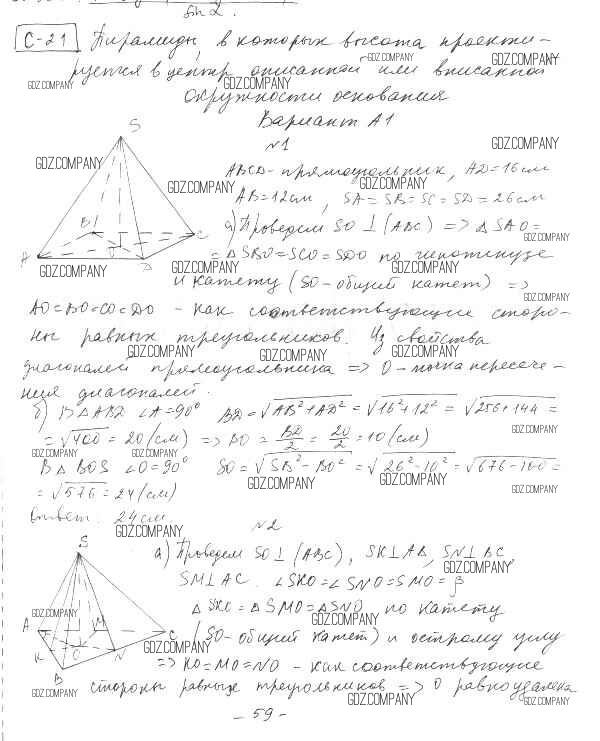 sin 2.
С-21 Пирамиды, в которых высота проекти-
руется в центр описанной или вписанной
окружности основания
Вариант А1
№1
ABCD - прямоугольник, AD = 16 см
AB = 12 см, SA = SB = SC = SD = 26 см
а) Проведем SO ⊥ (ABC) => △SAO =
= △SBO = SCO = SDO по гипотенузе
и катету (SO - общий катет) =>
AO = BO = CO = DO - как соответствующие сторо-
ны равных треугольников. Из свойства
диагоналей прямоугольника => O - точка пересече-
ния диагоналей.
б) В △ABD ∠A = 90° BD = √AB² + AD² = √16² + 12² = √256 + 144 =
= √400 = 20 (см) => BO = BD/2 = 20/2 = 10 (см)
В △BOS ∠O = 90° SO = √SB² - BO² = √26² - 10² = √676 - 100 =
= √576 = 24 (см)
Ответ: 24 см
№2
а) Проведем SO ⊥ (ABC), SK ⊥ AB, SN ⊥ BC,
SM ⊥ AC. ∠SKO = ∠SNO = SMO = β
△SKO = △SMO = △SNO по катету
(SO - общий катет) и острому углу
=> KO = MO = NO - как соответствующие
стороны равных треугольников => O равноудалена
- 59 -
S
A
B
C
D
O
S
A
K
B
O
N
M
C
GDZ.COMPANY